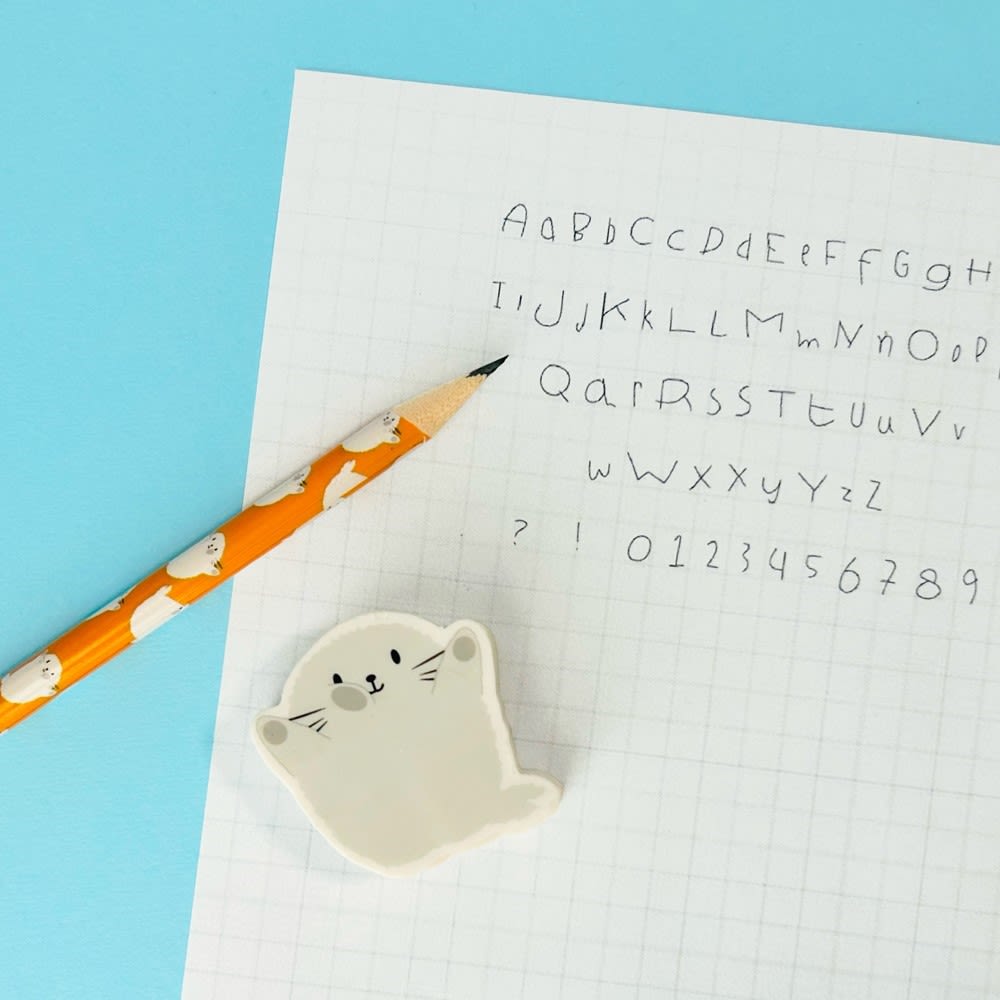 AaBbCcDdEeFfGgH
IiJjKkLLMmNnOoP
QarRsSTtUuVv
wWXXyYzZ
? ! 0123456789